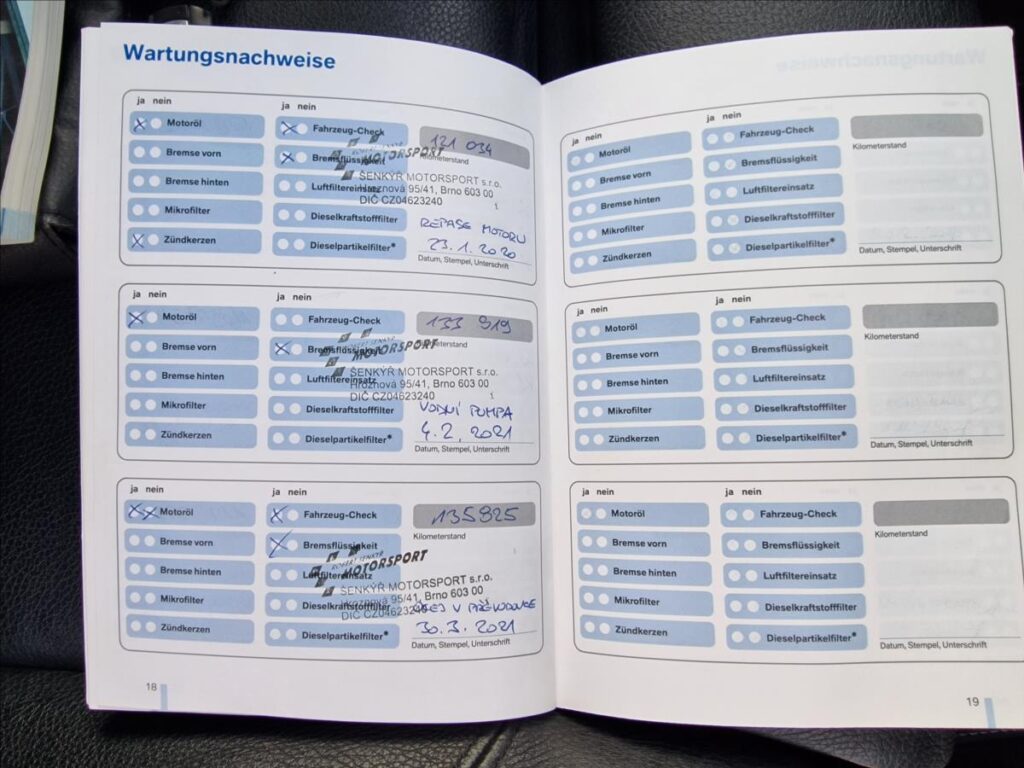 Wartungsnachweise
ja nein
ja nein
Motoröl
Fahrzeug-Check
121 034
Bremse vorn
Bremsflüssigkeit
Kilometerstand
MOTORSPORT
ŠENKÝŘ MOTORSPORT s.r.o.
Bremse hinten
Luftfiltereinsatz
Hroznová 95/41, Brno 603 00
DIČ CZ04623240
Mikrofilter
Dieselkraftstofffilter
REPASE MOTORU
Zündkerzen
Dieselpartikelfilter*
23.1.2020
Datum, Stempel, Unterschrift
ja nein
ja nein
Motoröl
Fahrzeug-Check
133 919
Bremse vorn
Bremsflüssigkeit
Kilometerstand
MOTORSPORT
ŠENKÝŘ MOTORSPORT s.r.o.
Bremse hinten
Luftfiltereinsatz
Hroznová 95/41, Brno 603 00
DIČ CZ04623240
Mikrofilter
Dieselkraftstofffilter
VODNÍ PUMPA
Zündkerzen
Dieselpartikelfilter*
4.2.2021
Datum, Stempel, Unterschrift
ja nein
ja nein
Motoröl
Fahrzeug-Check
135825
Kilometerstand
Bremse vorn
Bremsflüssigkeit
ROBERT SENKYR
MOTORSPORT
Bremse hinten
Luftfiltereinsatz
ŠENKÝŘ MOTORSPORT s.r.o.
Hroznová 95/41, Brno 603 00
DIČ CZ04623240
Mikrofilter
Dieselkraftstofffilter
OLEJ V PŘEVODOVCE
Zündkerzen
Dieselpartikelfilter*
30.3.2021
Datum, Stempel, Unterschrift
18
ja nein
ja nein
Motoröl
Fahrzeug-Check
Kilometerstand
Bremse vorn
Bremsflüssigkeit
Bremse hinten
Luftfiltereinsatz
Mikrofilter
Dieselkraftstofffilter
Zündkerzen
Dieselpartikelfilter*
Datum, Stempel, Unterschrift
ja nein
ja nein
Motoröl
Fahrzeug-Check
Kilometerstand
Bremse vorn
Bremsflüssigkeit
Bremse hinten
Luftfiltereinsatz
Mikrofilter
Dieselkraftstofffilter
Zündkerzen
Dieselpartikelfilter*
Datum, Stempel, Unterschrift
ja nein
ja nein
Motoröl
Fahrzeug-Check
Kilometerstand
Bremse vorn
Bremsflüssigkeit
Bremse hinten
Luftfiltereinsatz
Mikrofilter
Dieselkraftstofffilter
Zündkerzen
Dieselpartikelfilter*
Datum, Stempel, Unterschrift
19